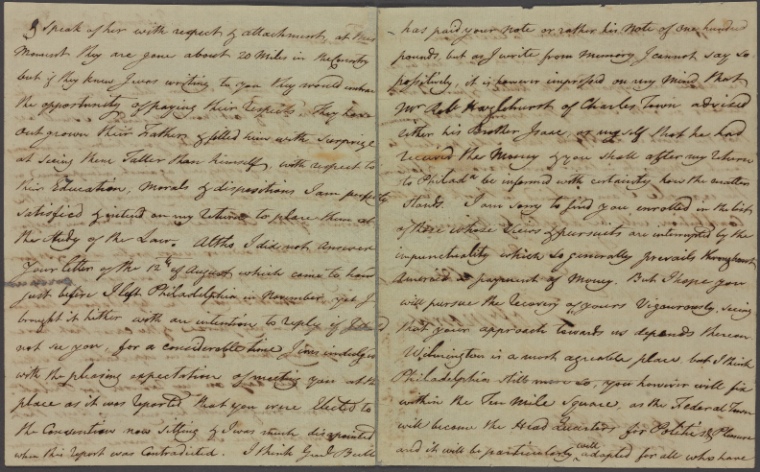 & Speak of her with respect & attachment, at this
Moment they are gone about 20 Miles in the Country
but if they knew I was writing to you they would embrace
the opportunity of paying their respects. They have
out grown their Father & filled him with Surprize
at Seeing them Taller than himself, with respect to
their Education, Morals & dispositions I am perfectly
Satisfied & intend on my return to place them at
the Study of the Law. Altho I did not answer
Your letter of the 12th of August which came to hand
just before I left Philadelphia in November yet I
brought it hither with an intention to reply if I did
not see you, for a considerable time I was indulged
with the pleasing expectation of meeting you at this
place as it was reported that you were Elected to
the Convention now Sitting & I was much disappointed
when this report was Contradicted. I think Genl. Butl
has paid your Note or rather his Note of One hundred
pounds but as I write from Memory I cannot say so
positively, it is however impressed on my Mind that
Mr Robt Hazlehurst of Charles Town advised
either his Brother Isaac or myself that he had
received the Money & you shall after my return
to Philada. be informed with certainty how the matter
Stands. I am sorry to find you enrolled in the list
of those whose Views & pursuits are interrupted by the
impunctuality which so generally prevails throughout
America in payment of Money. But I hope you
will pursue the recovery of yours Vigourously, seeing
that your approach towards us depends thereon
Wilmington is a most agreable place, but I think
Philadelphia Still more so, you however will fix
within the Ten Mile Square, as the Federal Town
will become the Head Quarters for Politics & Pleasure
and it will be particularly will adapted for all who have